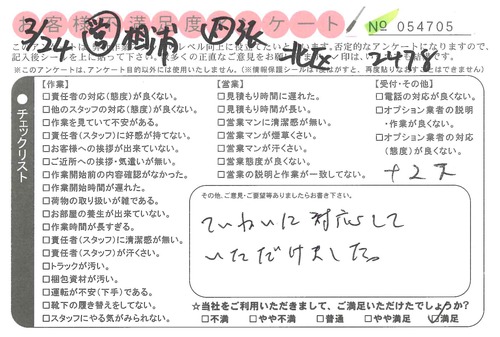 お客様不満足度アンケート
No 054705
3/24 営 相浦 北区 2478
記入後シールを上に貼って下さい。
※このアンケートは、アンケート目的以外には使用いたしません。(※情報保護シールは1度はがすと、再度貼りなおすことはできません)
チェックリスト
【作業】
□責任者の対応(態度)が良くない。
□他のスタッフの対応(態度)が良くない。
□作業を見ていて不安がある。
□責任者(スタッフ)に好感が持てない。
□お客様への挨拶が出来ていない。
□ご近所への挨拶・気遣いが無い。
□作業開始前の内容確認がなかった。
□作業開始時間が遅れた。
□荷物の取り扱いが雑である。
□お部屋の養生が出来ていない。
□作業時間が長すぎる。
□責任者(スタッフ)に清潔感が無い。
□責任者(スタッフ)が汗くさい。
□トラックが汚い。
□梱包資材が汚い。
□運転が不安(下手)である。
□靴下の履き替えをしてない。
□スタッフにやる気がみられない。
【営業】
□見積もり時間に遅れた。
□見積もり時間が長い。
□営業マンに清潔感が無い。
□営業マンが煙草くさい。
□営業マンが汗くさい。
□営業態度が良くない。
□営業の説明と作業が一致してない。
【受付・その他】
□電話の対応が良くない。
□オプション業者の説明
・作業が良くない。
□オプション業者の対応
(態度)が良くない。
その他、ご意見・ご要望等ありましたらお書き下さい。
ていねいに対応して
いただけました。
☆当社をご利用いただきまして、ご満足いただけたでしょうか?
□不満 □やや不満 □普通 □やや満足 □満足